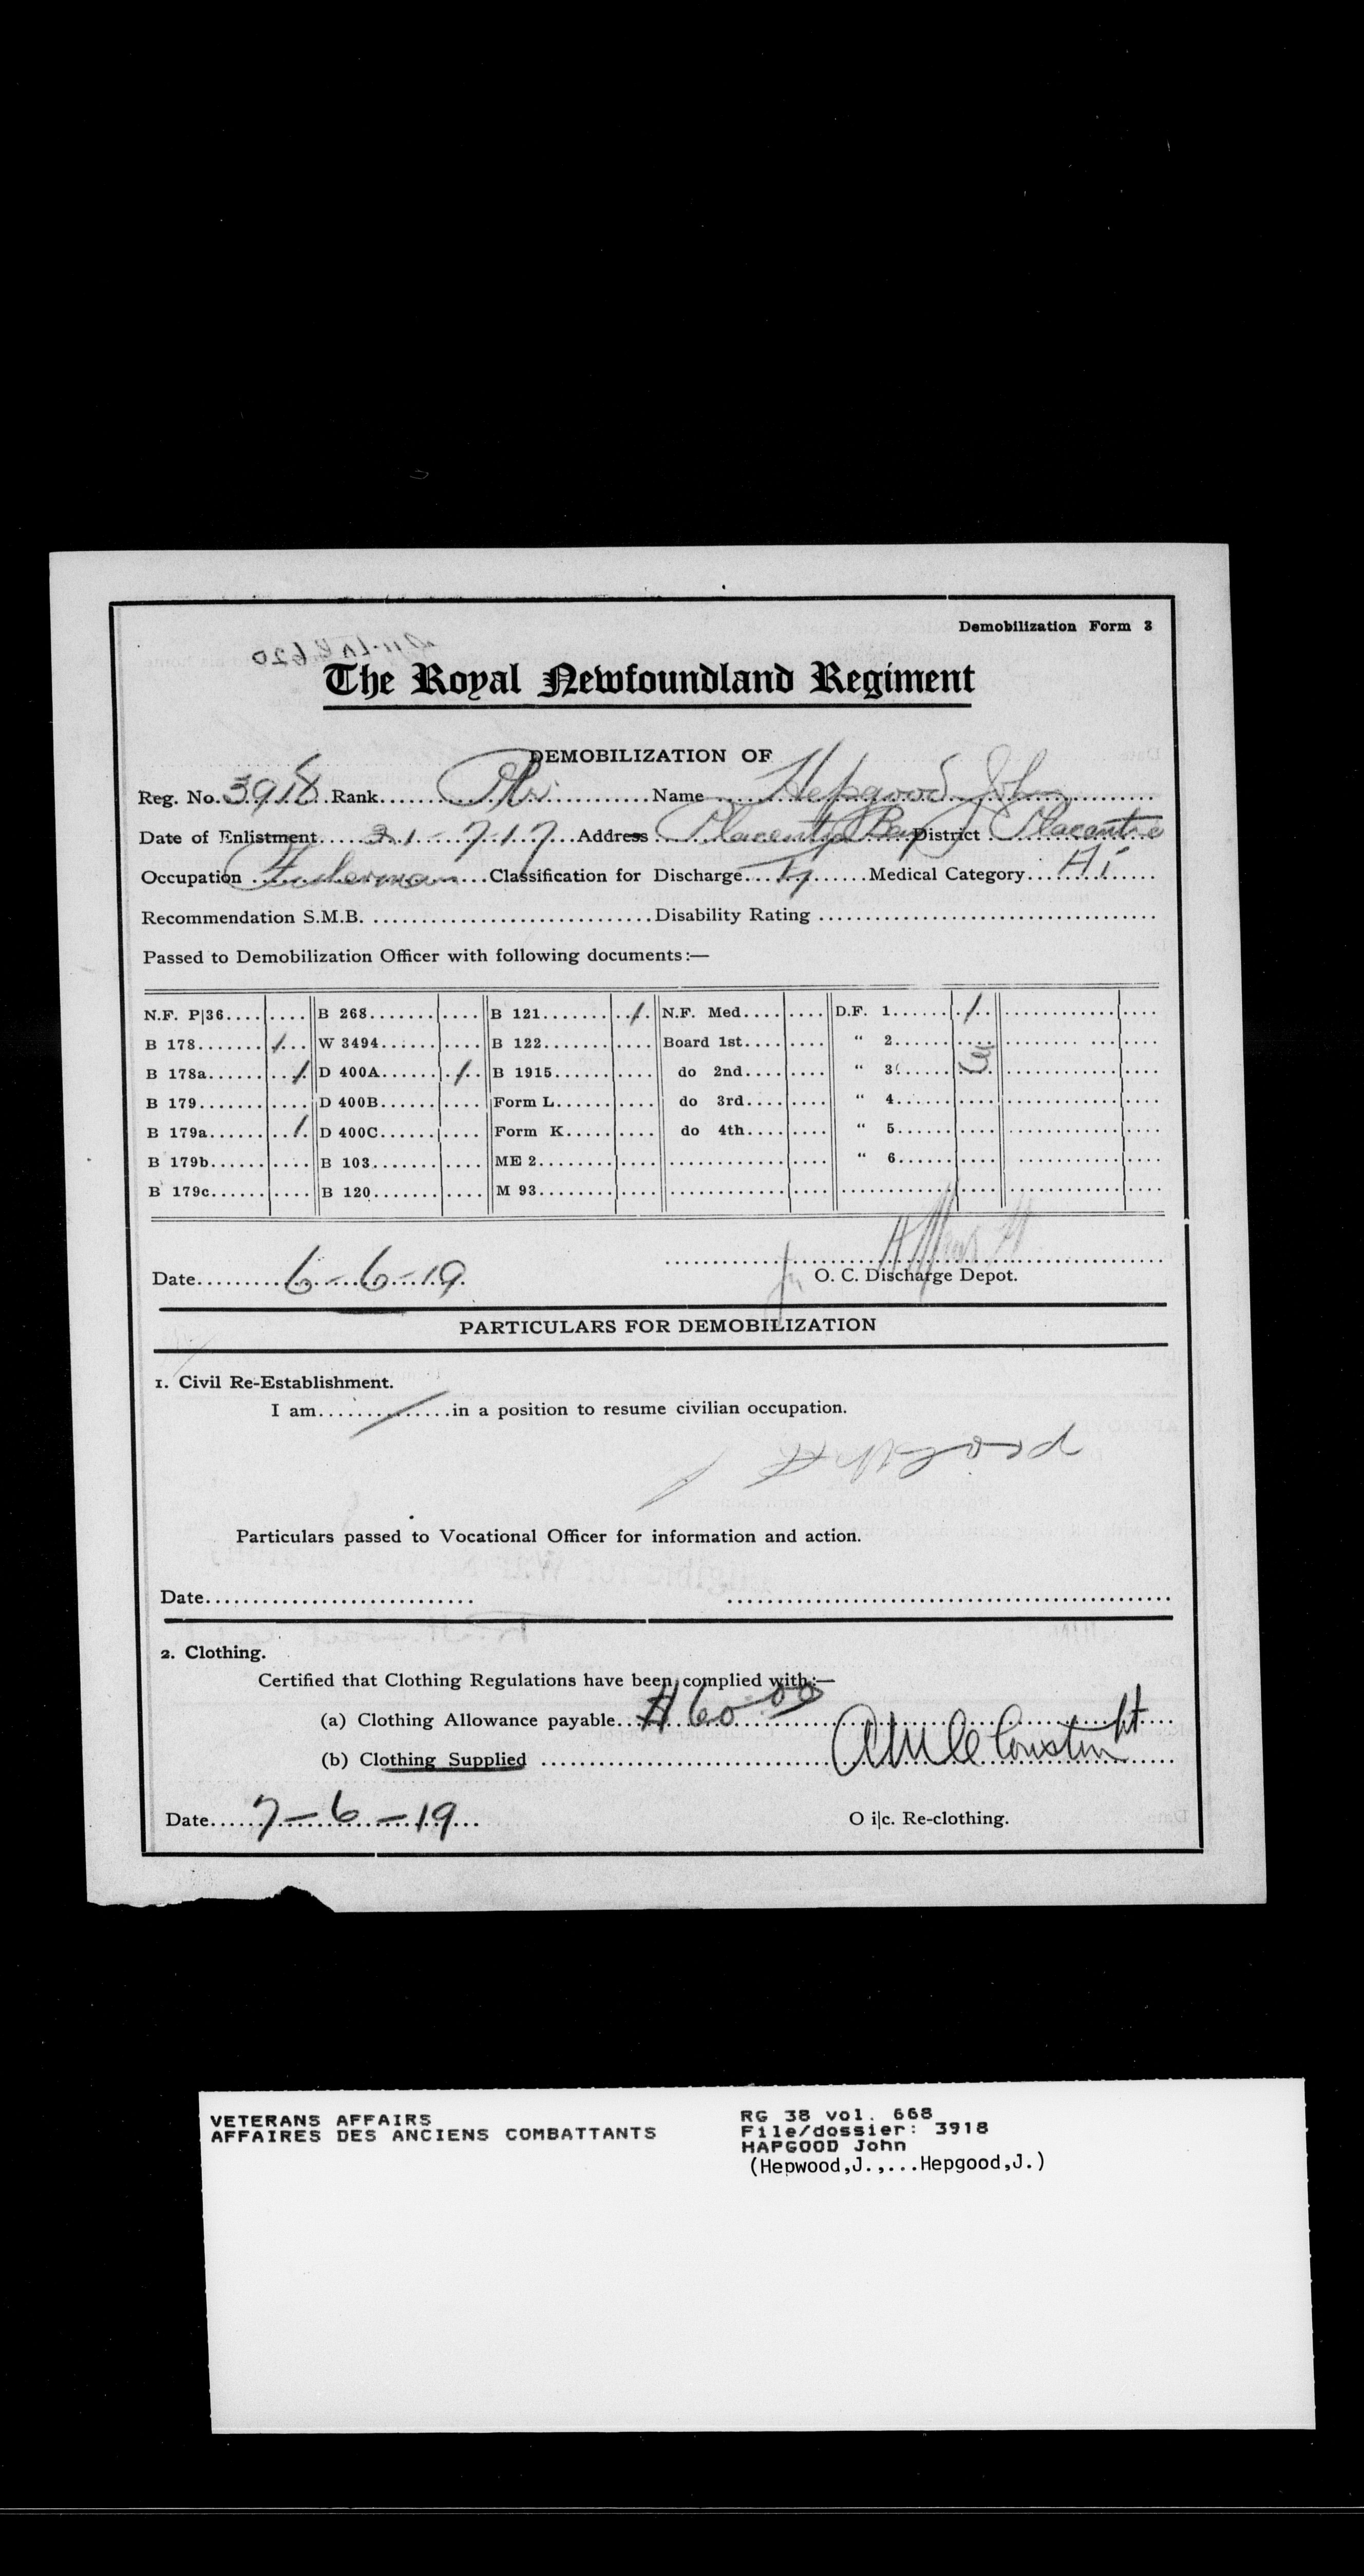 Demobilization Form 3
The Royal Newfoundland Regiment
DEMOBILIZATION OF
Reg. No. 3918 Rank Name Hepgood John
Date of Enlistment 21-7-17 Address Placentia Bay District Placentia
Occupation Fisherman Classification for Discharge Medical Category A1
Recommendation S.M.B. Disability Rating
Passed to Demobilization Officer with following documents:—
N.F. P|36 B 268 B 121 / N.F. Med. D.F. 1 /
B 178 / W 3494 B 122 Board 1st " 2
B 178a / D 400A / B 1915 do 2nd " 3
B 179 D 400B Form L do 3rd " 4
B 179a / D 400C Form K do 4th " 5
B 179b B 103 ME 2 " 6
B 179c B 120 M 93
Date 6-6-19 O. C. Discharge Depot.
PARTICULARS FOR DEMOBILIZATION
1. Civil Re-Establishment.
I am / in a position to resume civilian occupation.
J Hepgood
Particulars passed to Vocational Officer for information and action.
Date
2. Clothing.
Certified that Clothing Regulations have been complied with:—
(a) Clothing Allowance payable $60.00
(b) Clothing Supplied
Date 7-6-19 O i|c. Re-clothing.
VETERANS AFFAIRS
AFFAIRES DES ANCIENS COMBATTANTS
RG 38 vol. 668
File/dossier: 3918
HAPGOOD John
(Hepwood,J.,...Hepgood,J.)